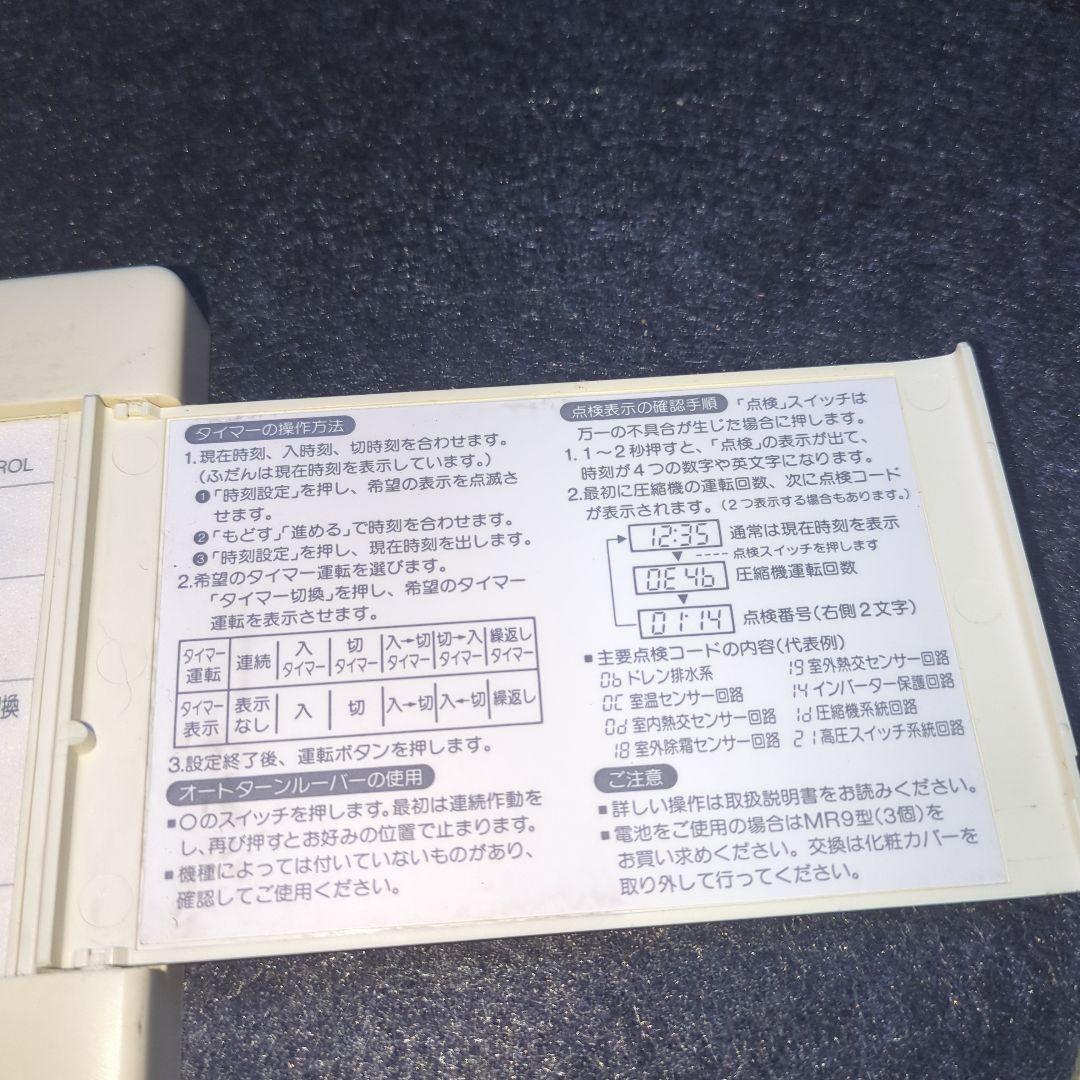 ROL
換
タイマーの操作方法
1.現在時刻、入時刻、切時刻を合わせます。
(ふだんは現在時刻を表示しています。)
❶「時刻設定」を押し、希望の表示を点滅さ
せます。
❷「もどす」「進める」で時刻を合わせます。
❸「時刻設定」を押し、現在時刻を出します。
2.希望のタイマー運転を選びます。
「タイマー切換」を押し、希望のタイマー
運転を表示させます。
タイマー運転 連続 入タイマー 切タイマー 入→切タイマー 切→入タイマー 繰返しタイマー
タイマー表示 表示なし 入 切 入→切 入←切 繰返し
3.設定終了後、運転ボタンを押します。
オートターンルーバーの使用
■○のスイッチを押します。最初は連続作動を
し、再び押すとお好みの位置で止まります。
■機種によっては付いていないものがあり、
確認してご使用ください。
点検表示の確認手順 「点検」スイッチは
万一の不具合が生じた場合に押します。
1.1～2秒押すと、「点検」の表示が出て、
時刻が4つの数字や英文字になります。
2.最初に圧縮機の運転回数、次に点検コード
が表示されます。(2つ表示する場合もあります。)
12:35 通常は現在時刻を表示
点検スイッチを押します
0E4b 圧縮機運転回数
01:14 点検番号(右側2文字)
■主要点検コードの内容(代表例)
0b ドレン排水系 19 室外熱交センサー回路
0C 室温センサー回路 14 インバーター保護回路
0d 室内熱交センサー回路 1d 圧縮機系統回路
18 室外除霜センサー回路 21 高圧スイッチ系統回路
ご注意
■詳しい操作は取扱説明書をお読みください。
■電池をご使用の場合はMR9型(3個)を
お買い求めください。交換は化粧カバーを
取り外して行ってください。